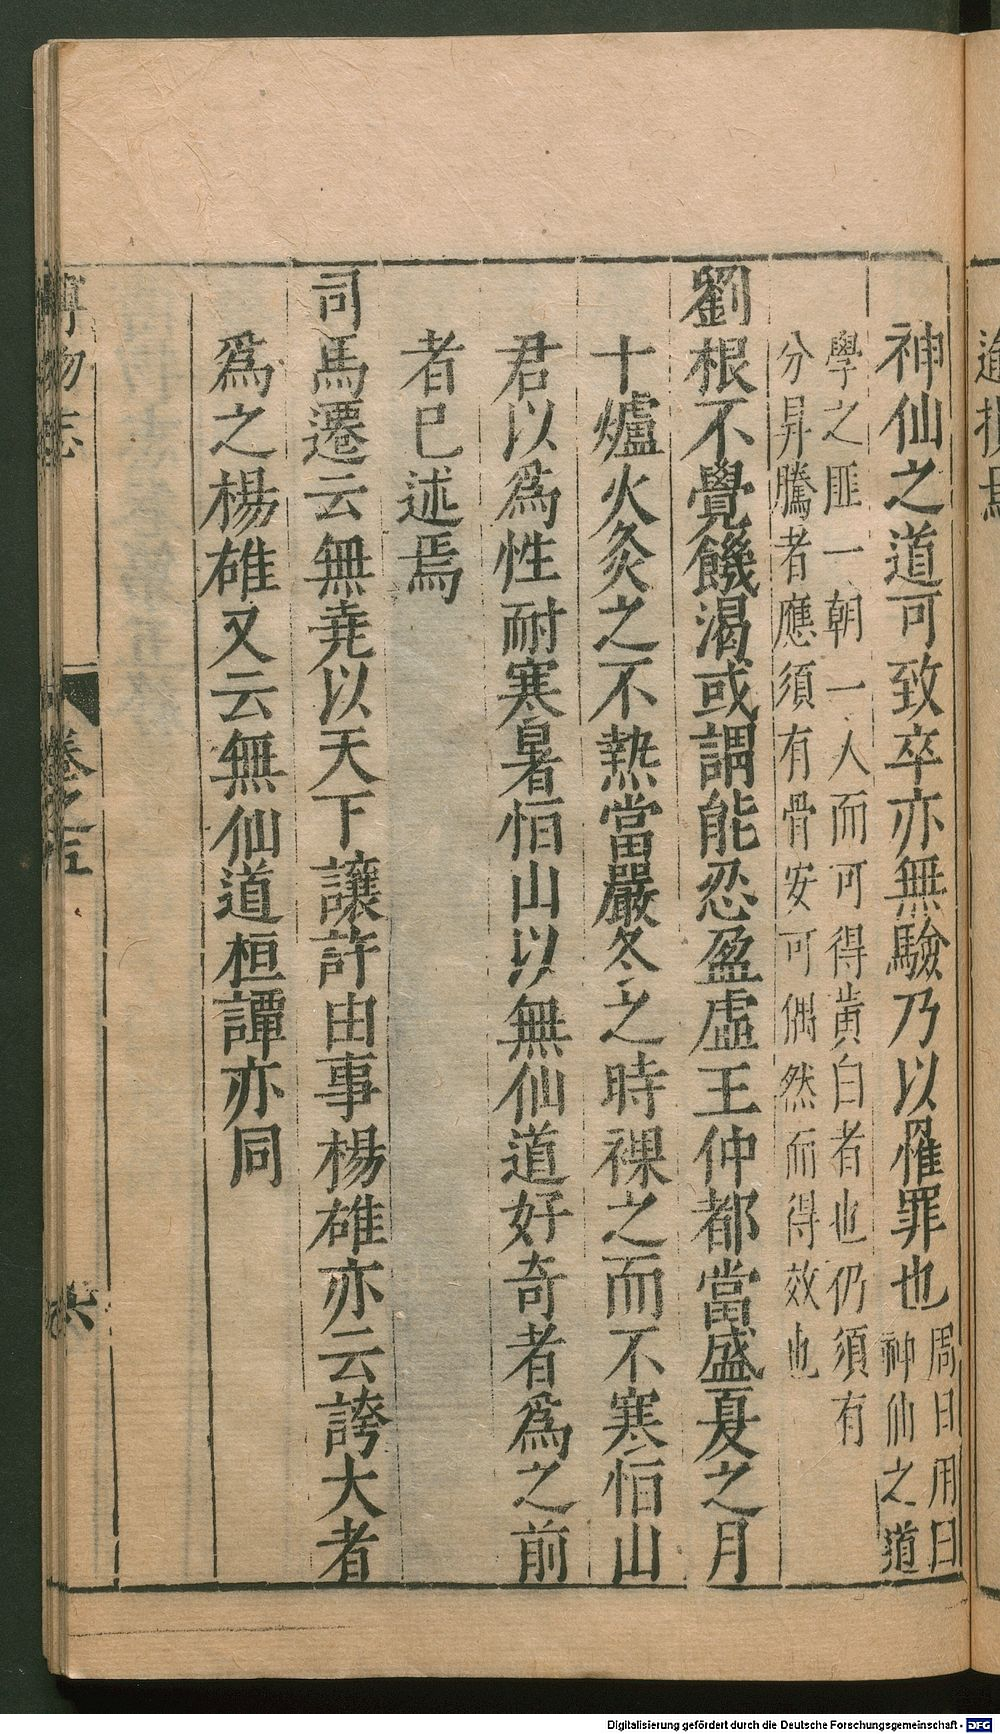 神仙之道可致卒亦無驗乃以罹罪也周日用曰神仙之道
學之匪一朝一人而可得黄白者也仍須有
分昇騰者應須有骨安可偶然而得效也
劉根不覺饑渴或謂能忍盈虛王仲都當盛夏之月
十爐火灸之不熱當嚴冬之時裸之而不寒恒山
君以爲性耐寒暑恒山以無仙道好奇者爲之前
者已述焉
司馬遷云無堯以天下讓許由事楊雄亦云誇大者
爲之楊雄又云無仙道桓譚亦同
博物志 卷之五 六
Digitalisierung gefördert durch die Deutsche Forschungsgemeinschaft - DFG